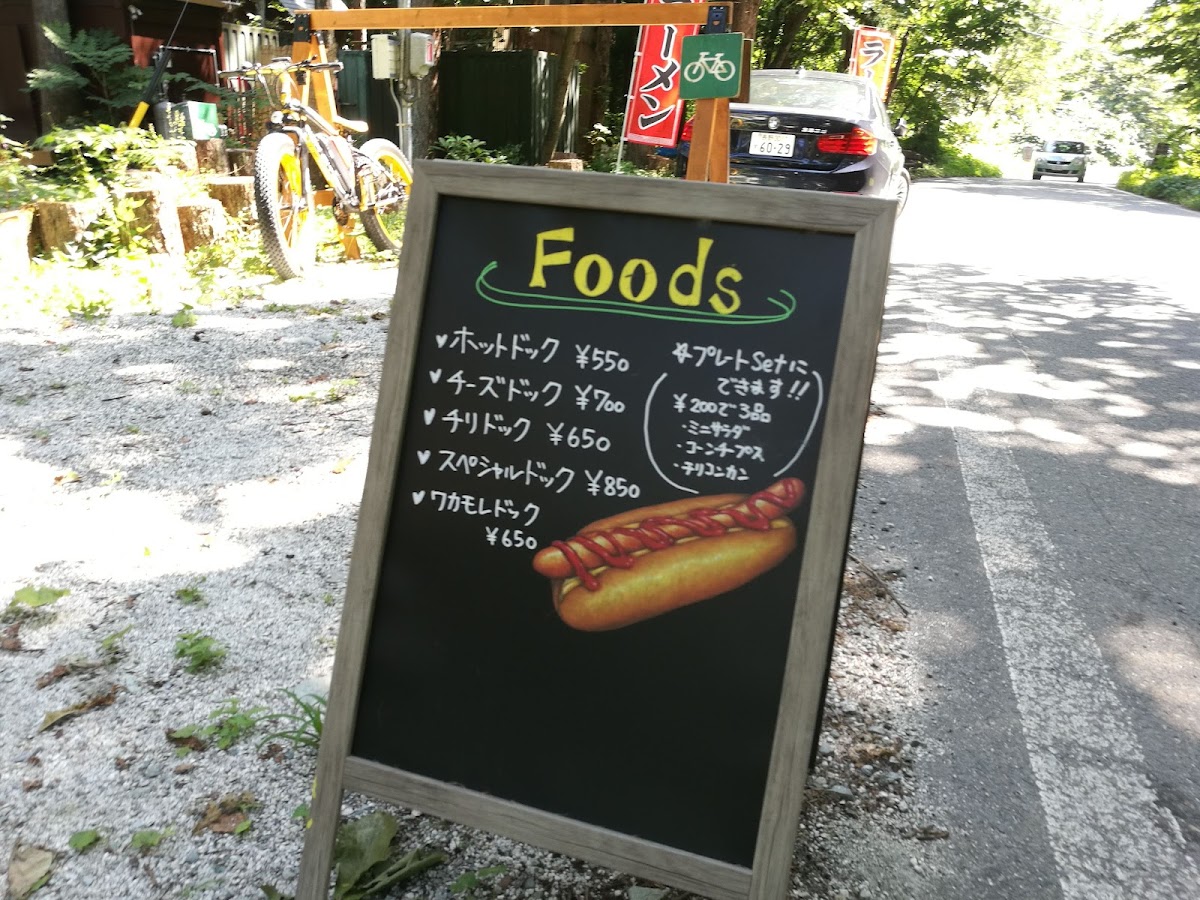 ーメン
ラ
60-29
Foods
♥ホットドック ¥550
♥チーズドック ¥700
♥チリドック ¥650
♥スペシャルドック ¥850
♥ワカモレドック
¥650
☆プレートSetに
できます!!
¥200で3品
・ミニサラダ
・コーンチップス
・チリコンカン